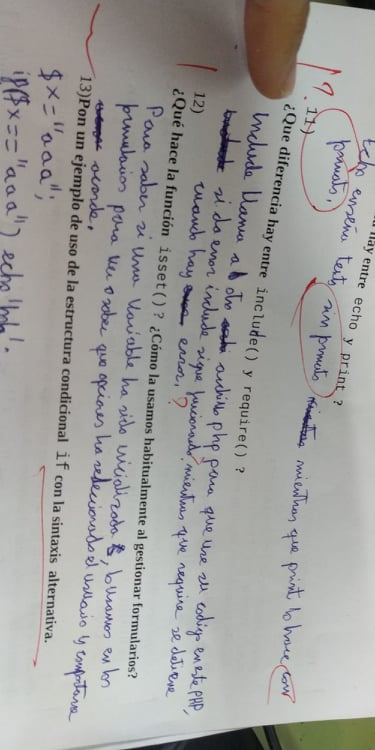 hay entre echo y print ?
Echo enseña texto sin formato mientras que print lo hace con
formato.
1?
11)
¿Que diferencia hay entre include() y require() ?
Include llama a otro archivo php para que use su codigo en este PHP,
si da error include sigue funcionado mientras que require se detiene
cuando hay error. ?
12)
¿Qué hace la función isset()? ¿Cómo la usamos habitualmente al gestionar formularios?
Para saber si una variable ha sido inicializada, lo usamos en los
formularios para ver o saber que opciones ha seleccionado el usuario y comportarse
acorde.
13)Pon un ejemplo de uso de la estructura condicional if con la sintaxis alternativa.
$x="aaa";
if($x=="aaa") echo